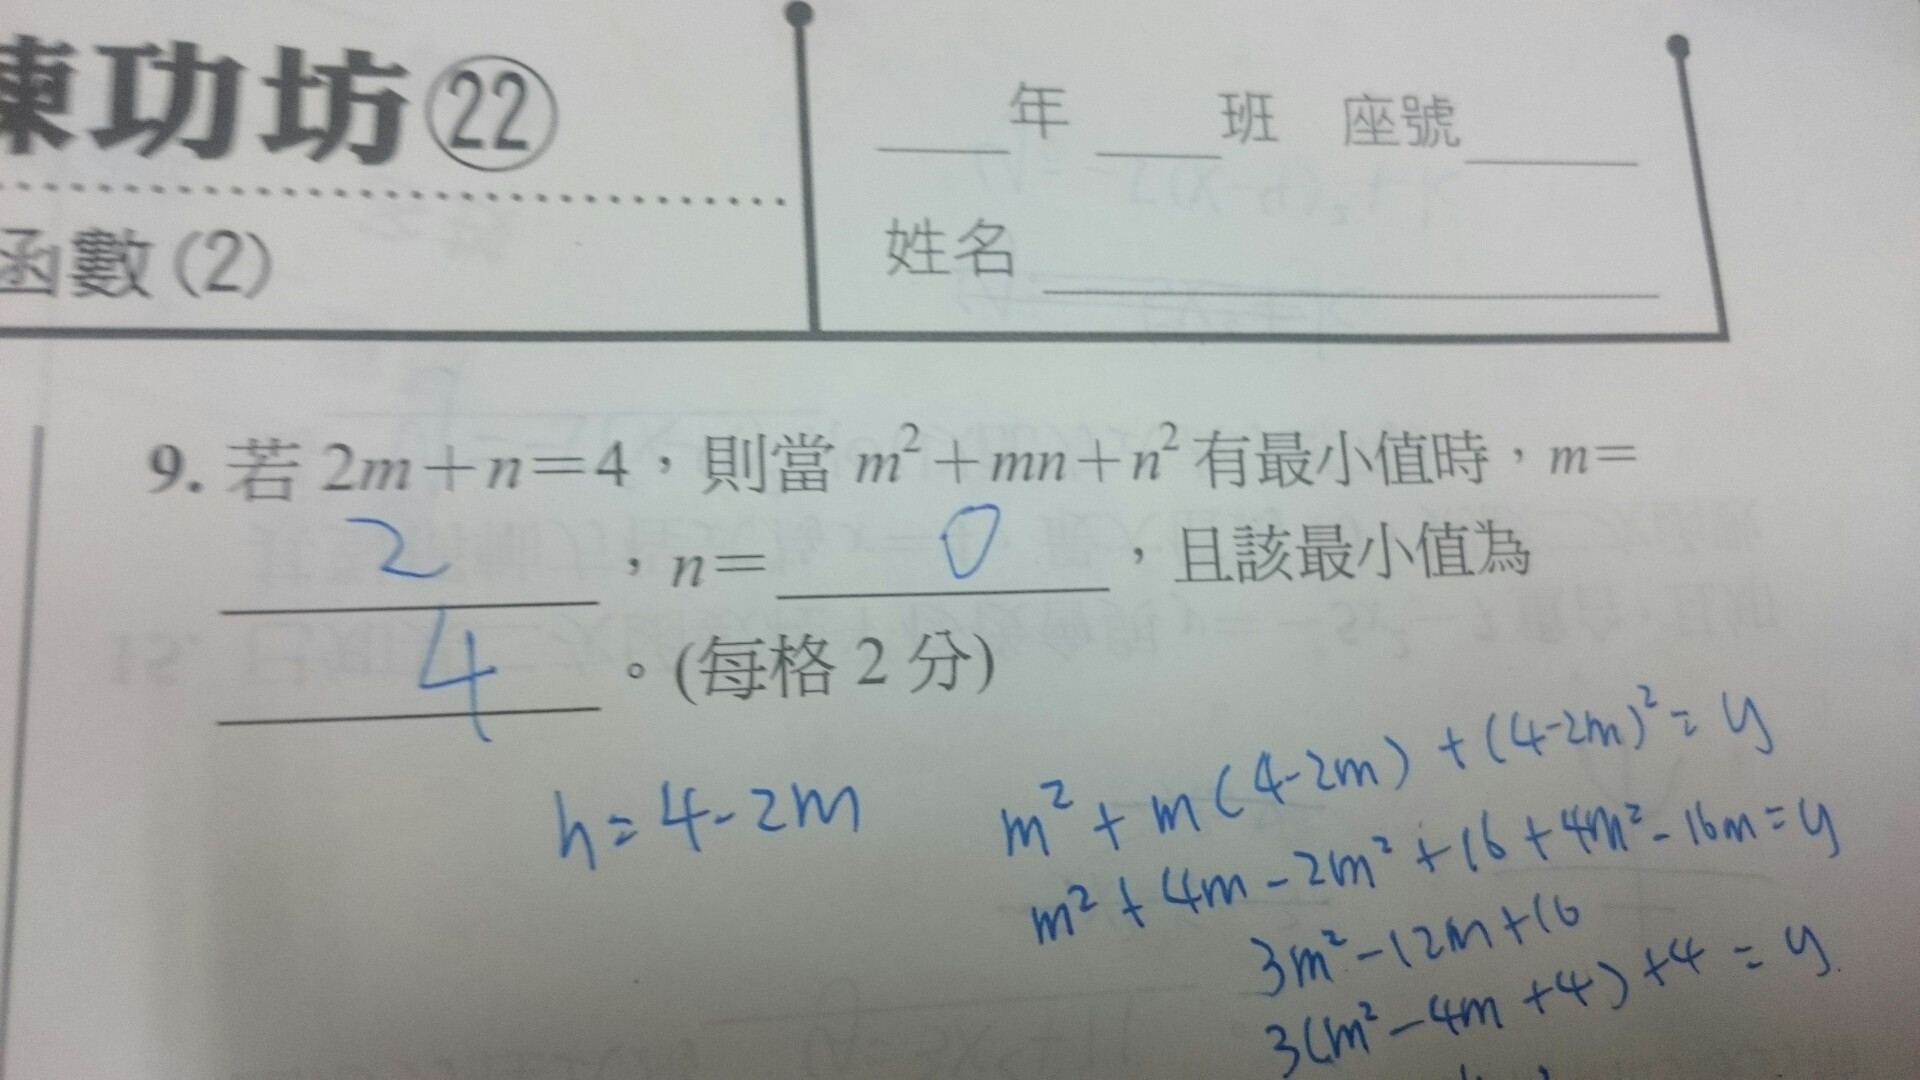 練功坊㉒
年 班 座號
姓名
函數(2)
9. 若 2m+n=4，則當 m²+mn+n² 有最小值時，m=
2，n= 0，且該最小值為
4。(每格 2 分)
n=4-2m
m²+m(4-2m)+(4-2m)²=y
m²+4m-2m²+16+4m²-16m=y
3m²-12m+16
3(m²-4m+4)+4=y